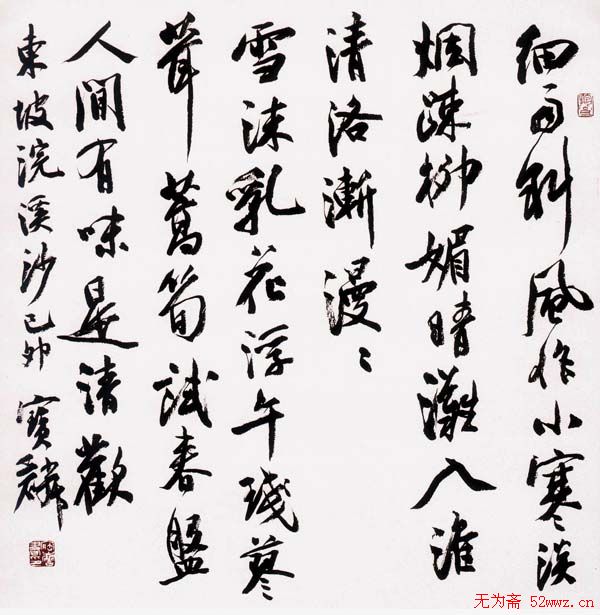 細雨斜風作小寒淡
烟疎柳媚晴灘入淮
清洛漸漫々
雪沫乳花浮午琖蓼
茸蒿筍試春盤
人間有味是清歡
東坡浣溪沙己卯寶麟
无为斋 52wwz.cn